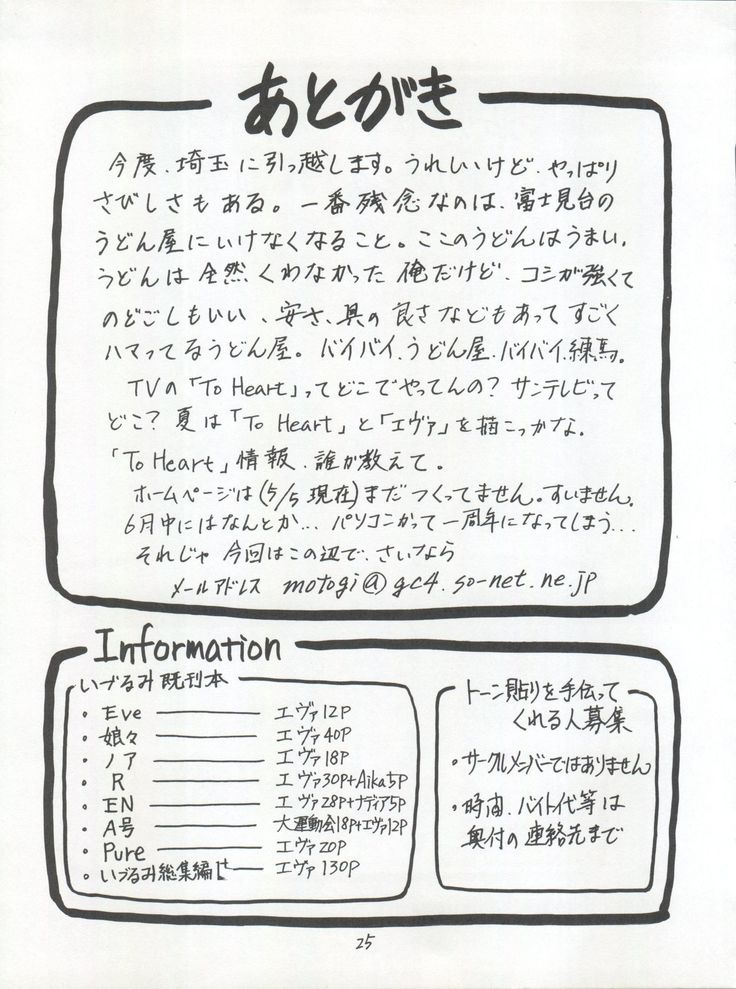 あとがき
今度、埼玉に引っ越します。うれしいけど、やっぱり
さびしさもある。一番残念なのは、富士見台の
うどん屋にいけなくなること。ここのうどんはうまい。
うどんは全然くわなかった俺だけど、コシが強くて
のどごしもいい、安さ、具の良さなどもあってすごく
ハマってるうどん屋。バイバイ、うどん屋、バイバイ、練馬。
TVの「To Heart」ってどこでやってんの？サンテレビって
どこ？夏は「To Heart」と「エヴァ」を描こっかな。
「To Heart」情報、誰か教えて。
ホームページは(5/5現在)まだつくってません。すいません。
6月中にはなんとか… パソコンかって一周年になってしまう…
それじゃ今回はこの辺で、さいなら
メールアドレス motogi@gc4.so-net.ne.jp
Information
いづるみ既刊本
・Eve ― エヴァ12P
・娘々 ― エヴァ40P
・ノア ― エヴァ18P
・R ― エヴァ30P+Aika5P
・EN ― エヴァ28P+ナディア5P
・A号 ― 大運動会18P+エヴァ12P
・Pure ― エヴァ20P
・いづるみ総集編 ― エヴァ130P
トーン貼りを手伝って
くれる人募集
・サークルメンバーではありません
・時間、バイト代等は
奥付の連絡先まで
25